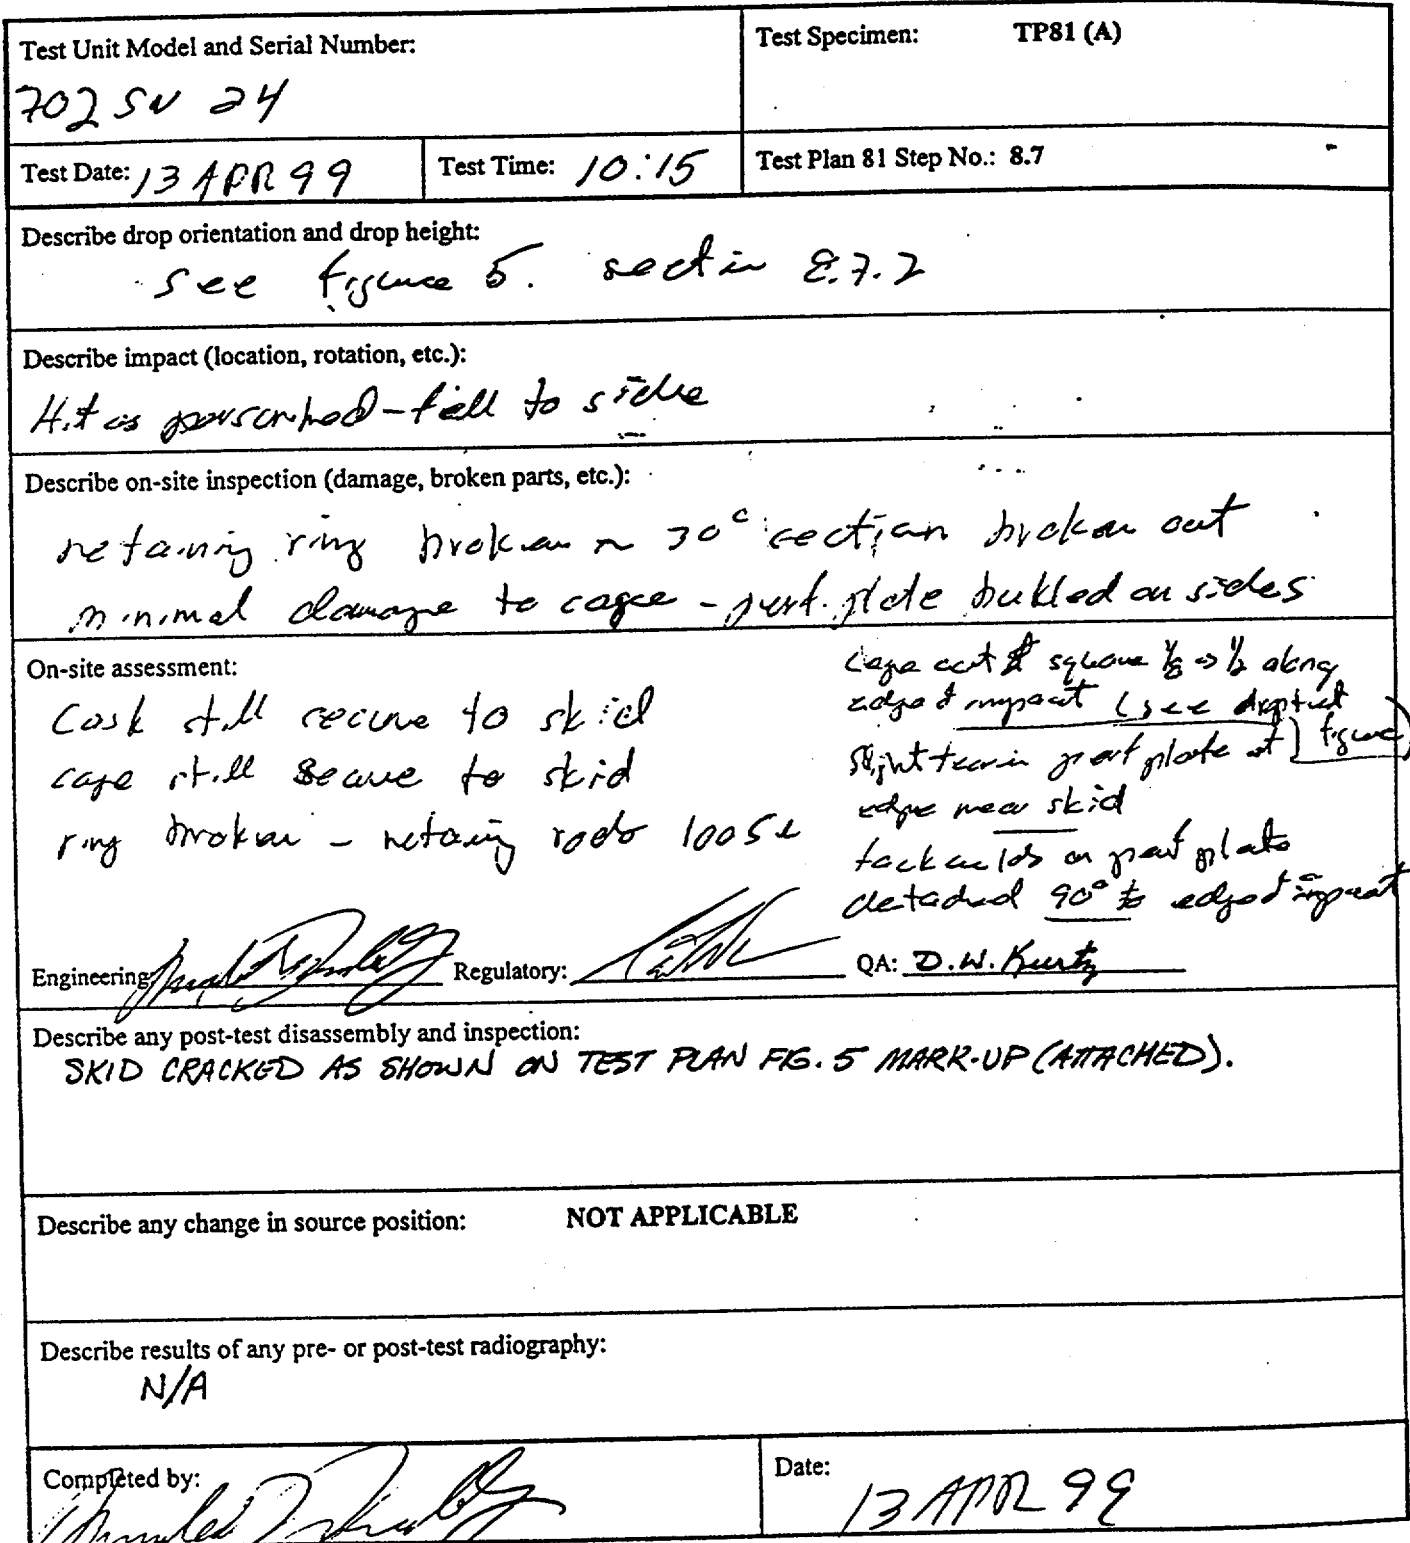 Test Unit Model and Serial Number:
702 SN 24
Test Specimen: TP81 (A)
Test Date: 13 APR 99
Test Time: 10:15
Test Plan 81 Step No.: 8.7
Describe drop orientation and drop height:
See figure 5. section 8.7.2
Describe impact (location, rotation, etc.):
Hit as perscribed - fell to side
Describe on-site inspection (damage, broken parts, etc.):
retaining ring broken ~ 30° section broken out
minimal damage to cage - perf. plate bukled on sides
On-site assessment:
Cask still secure to skid
cage still secure to skid
ring broken - retaing rods loose
cage out of square 1/8 → 1/2 along
edge of impact (see
figure)
slight tear in perf plate at
edge near skid
tack welds on perf plate
detached 90° to edge of impact
Engineering:
Regulatory:
QA: D.W. Kurtz
Describe any post-test disassembly and inspection:
SKID CRACKED AS SHOWN ON TEST PLAN FIG. 5 MARK-UP (ATTACHED).
Describe any change in source position: NOT APPLICABLE
Describe results of any pre- or post-test radiography:
N/A
Completed by:
Date:
13 APR 99